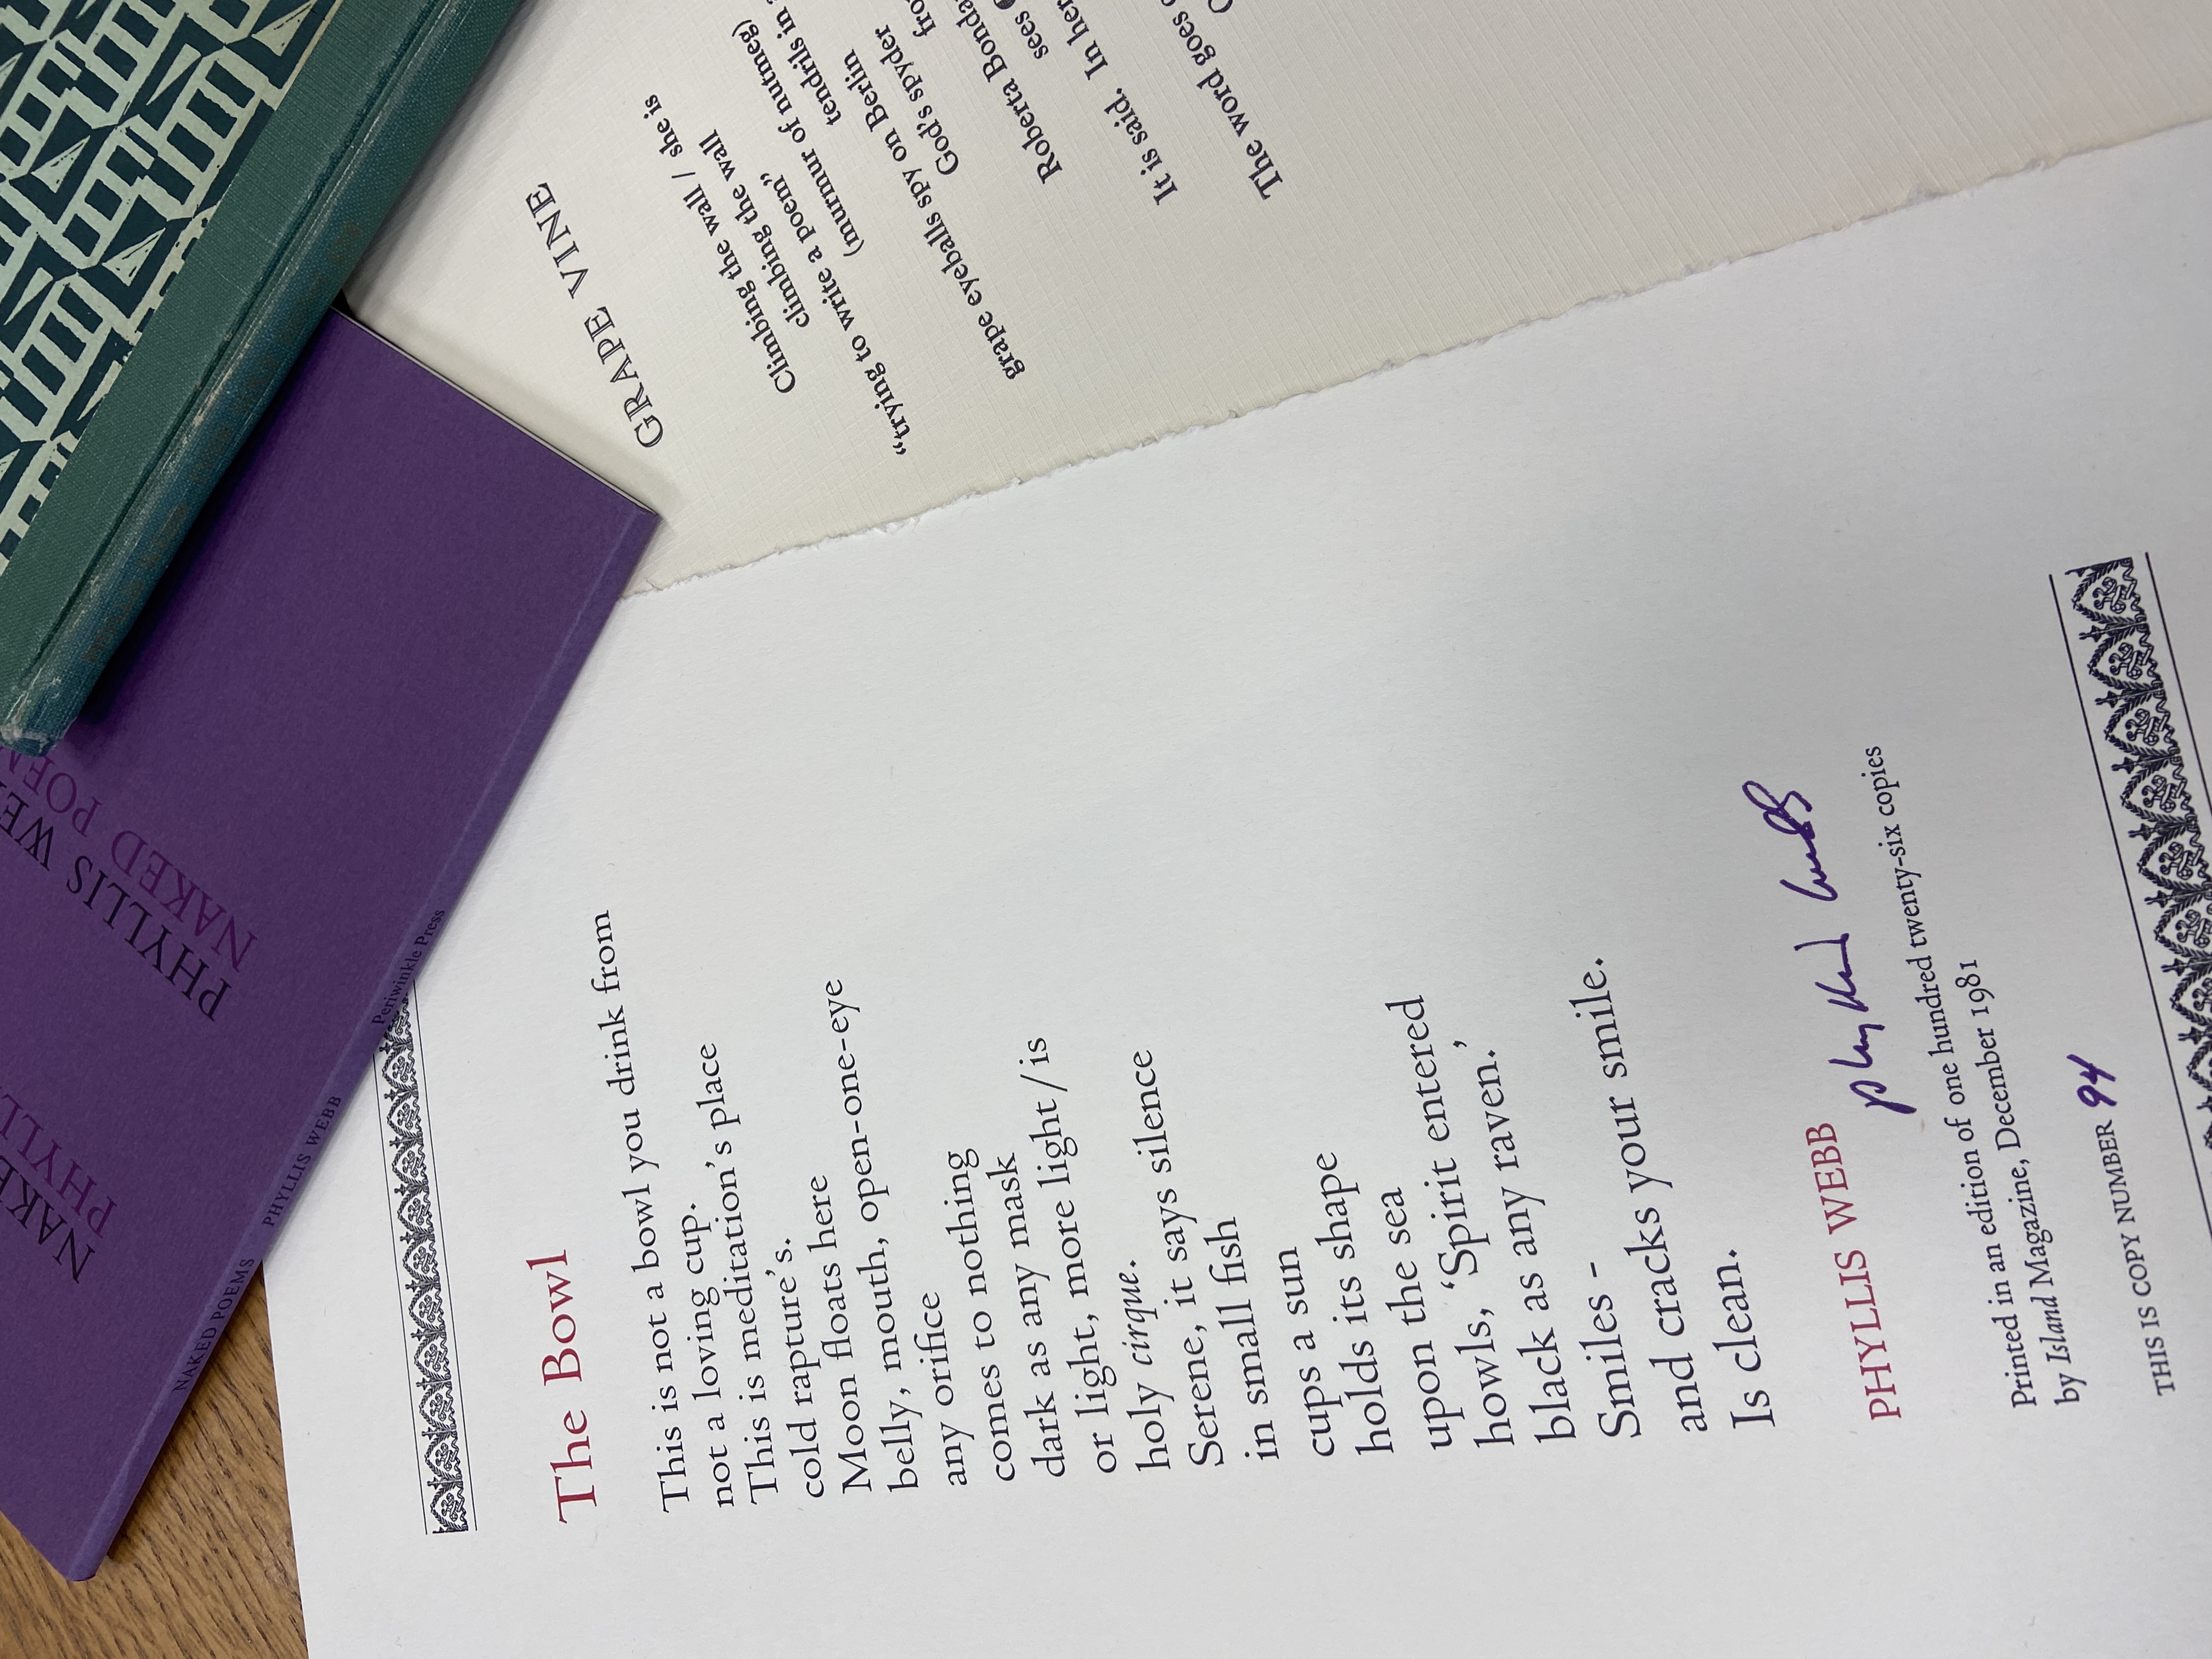 The Bowl
This is not a bowl you drink from
not a loving cup.
This is meditation's place
cold rapture's.
Moon floats here
belly, mouth, open-one-eye
any orifice
comes to nothing
dark as any mask
or light, more light / is
holy cirque.
Serene, it says silence
in small fish
cups a sun
holds its shape
upon the sea
howls, 'Spirit entered
black as any raven.'
Smiles -
and cracks your smile.
Is clean.
PHYLLIS WEBB
phyllis webb
Printed in an edition of one hundred twenty-six copies
by Island Magazine, December 1981
THIS IS COPY NUMBER 94
GRAPE VINE
Climbing the wall / she is
climbing the wall
"trying to write a poem"
(murmur of nutmeg)
tendrils in
grape eyeballs spy on Berlin
God's spyder
Roberta Bonda
sees
It is said. In her
The word goes
NAKED POEMS
PHYLLIS WEBB
Periwinkle Press
PHYLLIS WE
NAKED POEM
NAKE
PHYLL